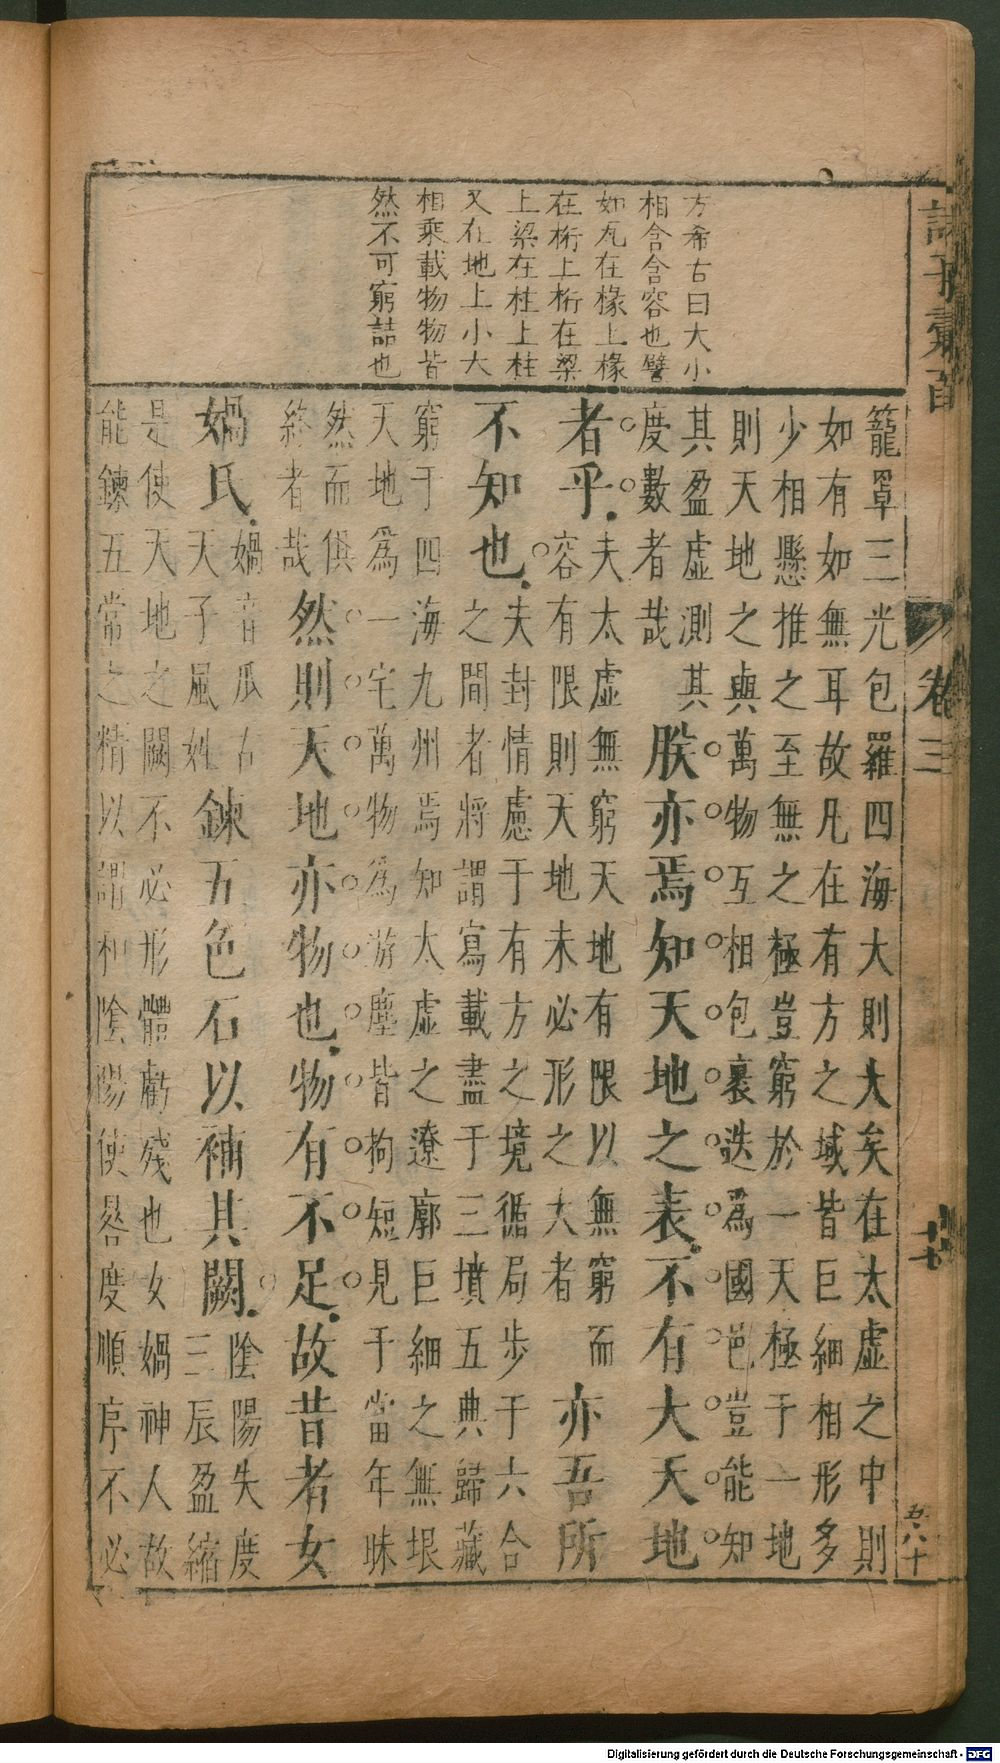 方希古曰大小
相含含容也譬
如瓦在椽上椽
在桁上桁在梁
上梁在柱上柱
又在地上小大
相乘載物物皆
然不可窮詰也
籠罩三光包羅四海大則大矣在太虛之中則
如有如無耳故凡在有方之域皆巨細相形多
少相懸推之至無之極豈窮於一天極于一地
則天地之與萬物互相包裹迭為國邑豈能知
其盈虛測其
度數者哉
朕亦焉知天地之表不有大天地
者乎
夫太虛無窮天地有限以無窮而
容有限則天地未必形之大者
亦吾所
不知也
夫封情慮于有方之境循局步于六合
之間者將謂寫載盡于三墳五典歸藏
窮于四海九州焉知太虛之遼廓巨細之無垠
天地為一宅萬物為游塵皆拘短見于當年昧
然而俱
終者哉
然則天地亦物也物有不足故昔者女
媧氏
媧音瓜古
天子風姓
鍊五色石以補其闕
陰陽失度
三辰盈縮
是使天地之闕不必形體虧殘也女媧神人故
能鍊五常之精以調和陰陽使晷度順序不必
卷三
五八十
Digitalisierung gefördert durch die Deutsche Forschungsgemeinschaft - DFG